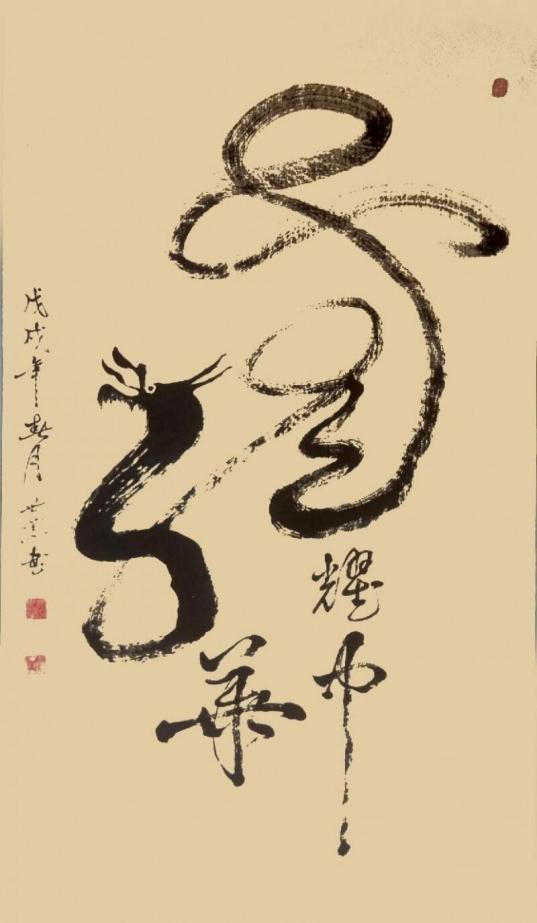 龍
耀中
華
戊戌年春月